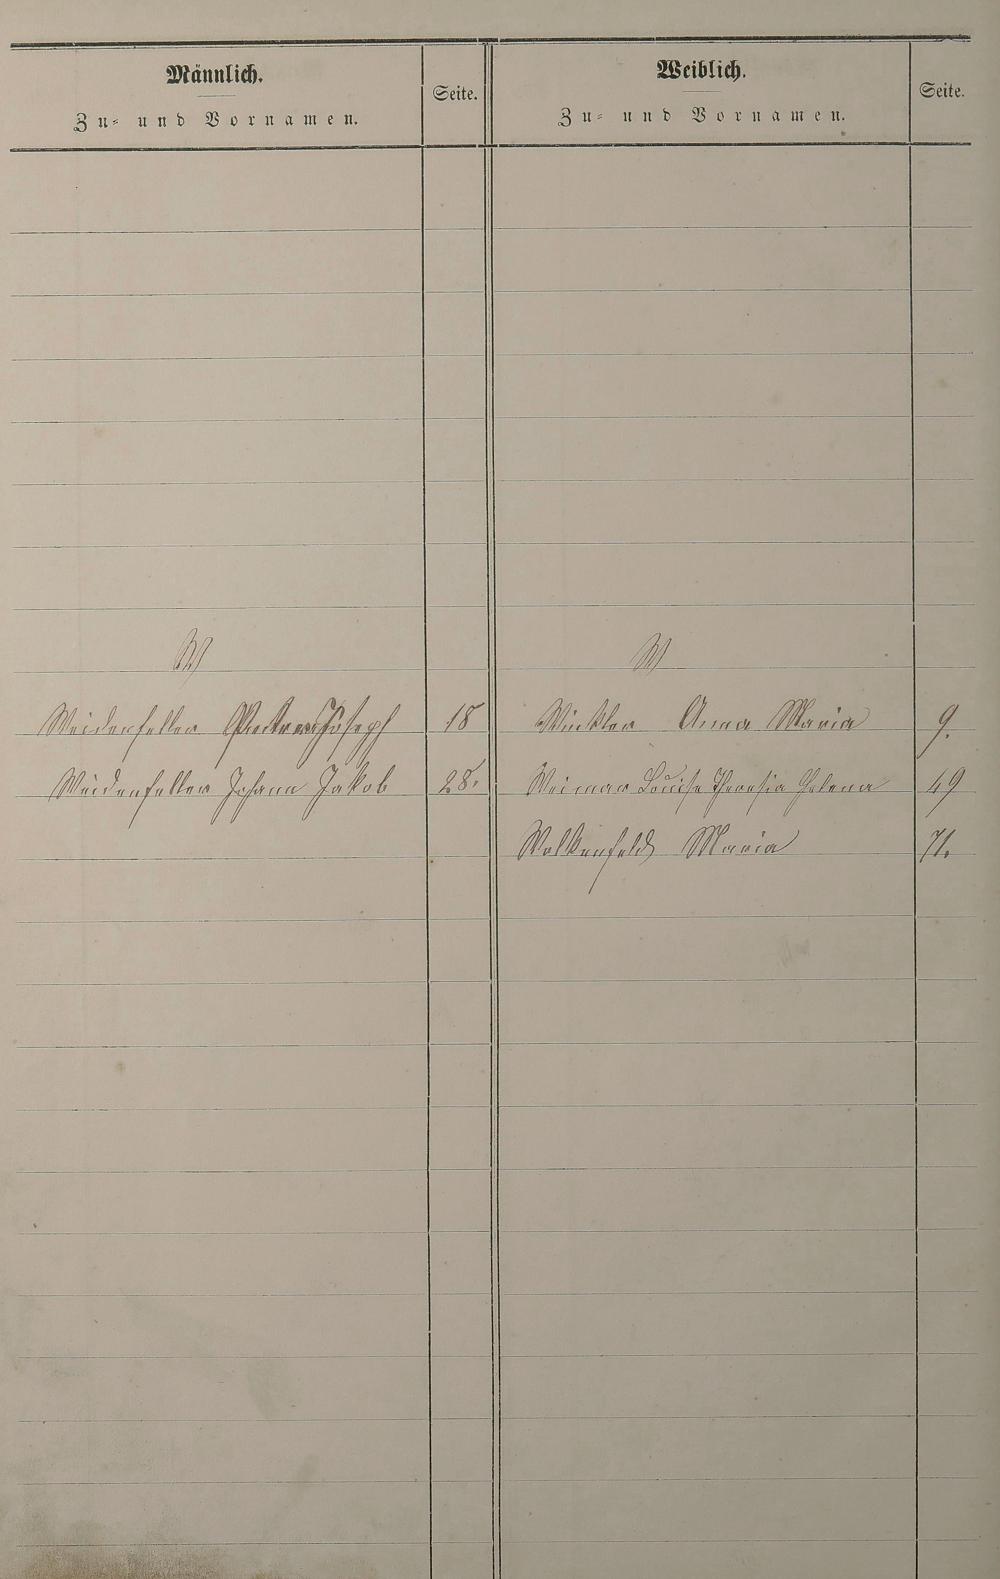 Männlich.
Zu- und Vornamen.
Seite.
Weiblich.
Zu- und Vornamen.
Seite.
W
W
Weidenfeller Joseph 18
Winkler Anna Maria 9.
Weidenfeller Johann Jakob 28.
Weimar Louise Theresia Helena 49
Wolkenfeld Maria 71.